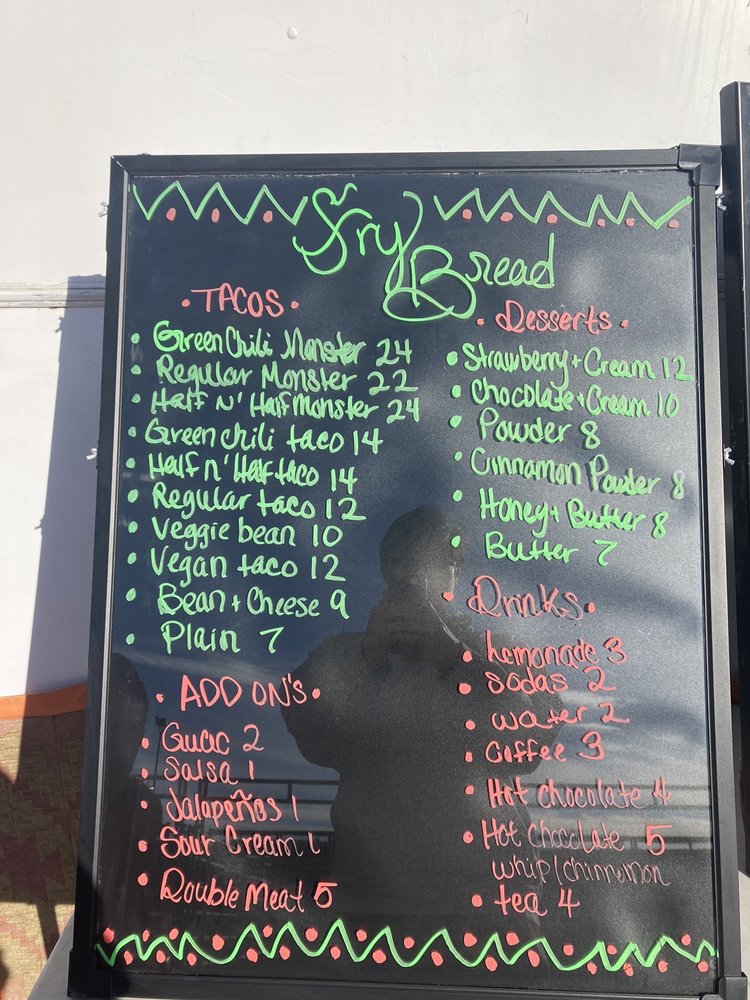 Fry Bread
TACOS
Green Chili Monster 24
Regular Monster 22
Half n' Half Monster 24
Green chili taco 14
Half n' Half taco 14
Regular taco 12
Veggie bean 10
Vegan taco 12
Bean + Cheese 9
Plain 7
ADD ON'S
Guac 2
Salsa 1
Jalapeños 1
Sour Cream 1
Double Meat 5
Desserts
Strawberry + Cream 12
Chocolate + Cream 10
Powder 8
Cinnamon Powder 8
Honey + Butter 8
Butter 7
Drinks
Lemonade 3
sodas 2
water 2
Coffee 3
Hot chocolate 4
Hot chocolate 5
whip/chinnomon
tea 4